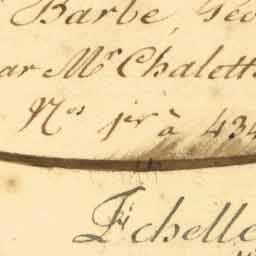 Barbé, Géo
ar Mr Chalett
Nos 1er à 434
Echelle